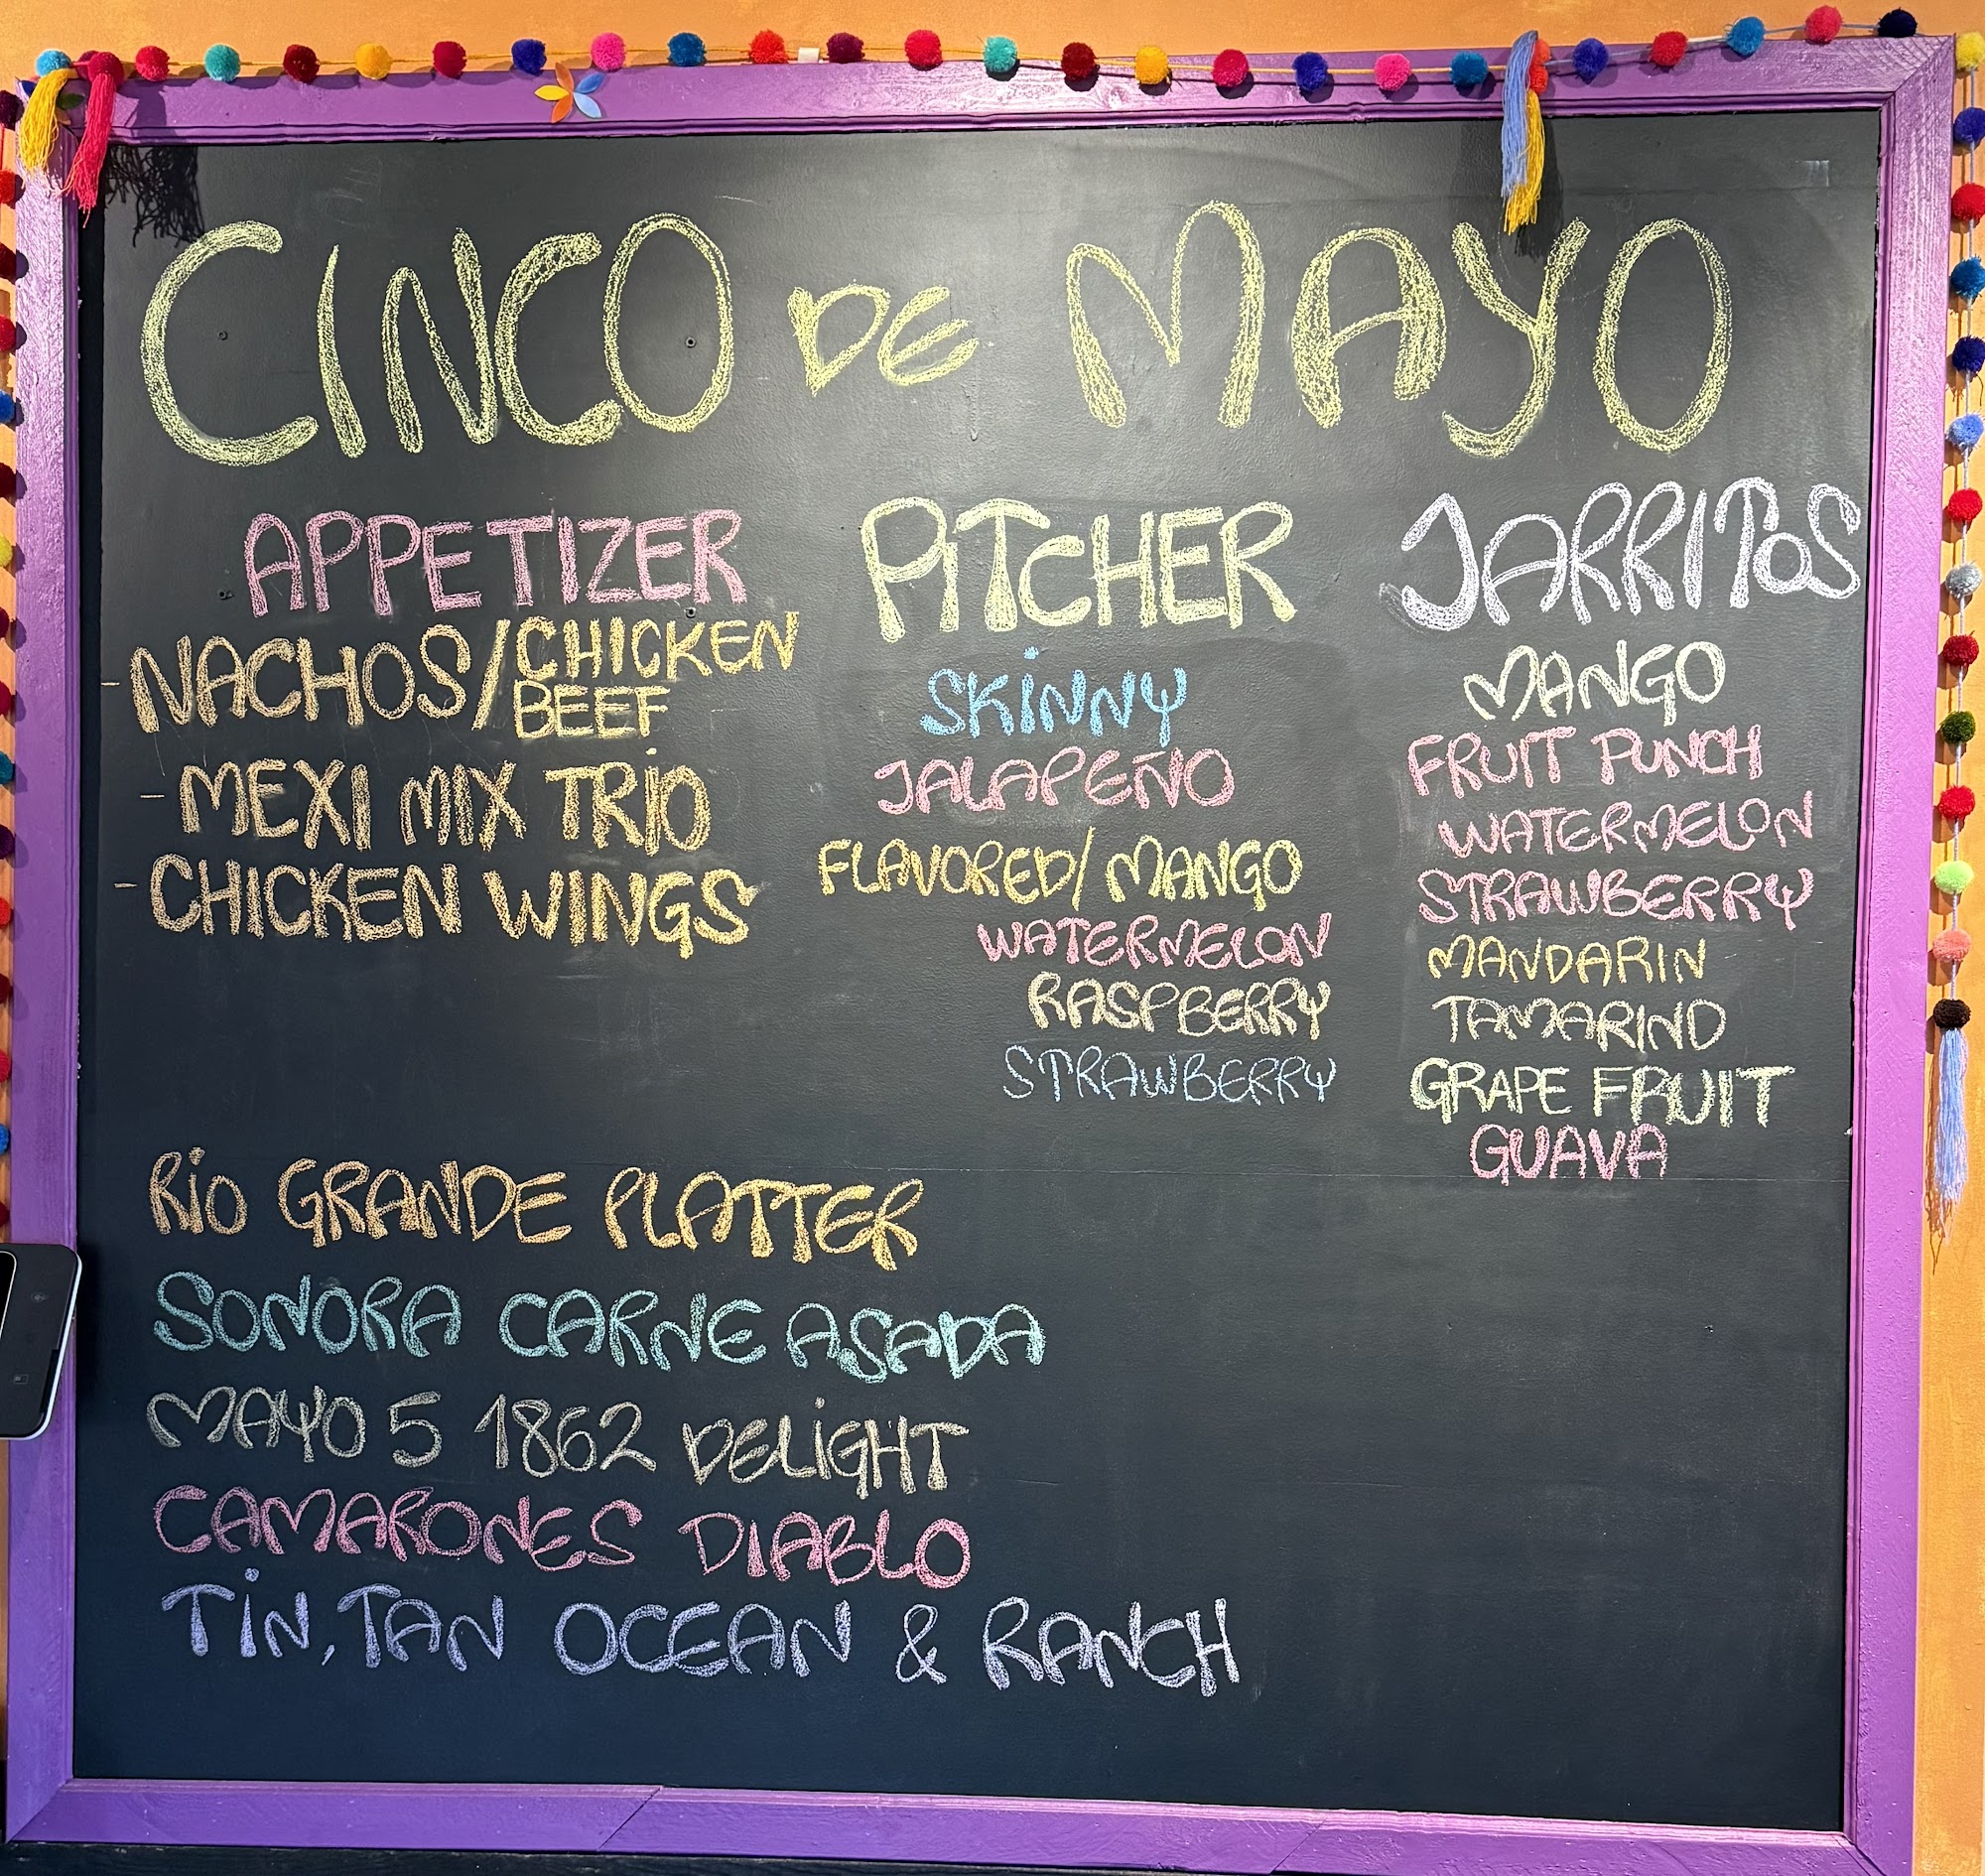 CINCO DE MAYO
APPETIZER
- NACHOS/CHICKEN
BEEF
- MEXI MIX TRIO
- CHICKEN WINGS
PITCHER
SKINNY
JALAPEÑO
FLAVORED/MANGO
WATERMELON
RASPBERRY
STRAWBERRY
JARRITOS
MANGO
FRUIT PUNCH
WATERMELON
STRAWBERRY
MANDARIN
TAMARIND
GRAPE FRUIT
GUAVA
RIO GRANDE PLATTER
SONORA CARNE ASADA
MAYO 5 1862 DELIGHT
CAMARONES DIABLO
TIN, TAN OCEAN & RANCH